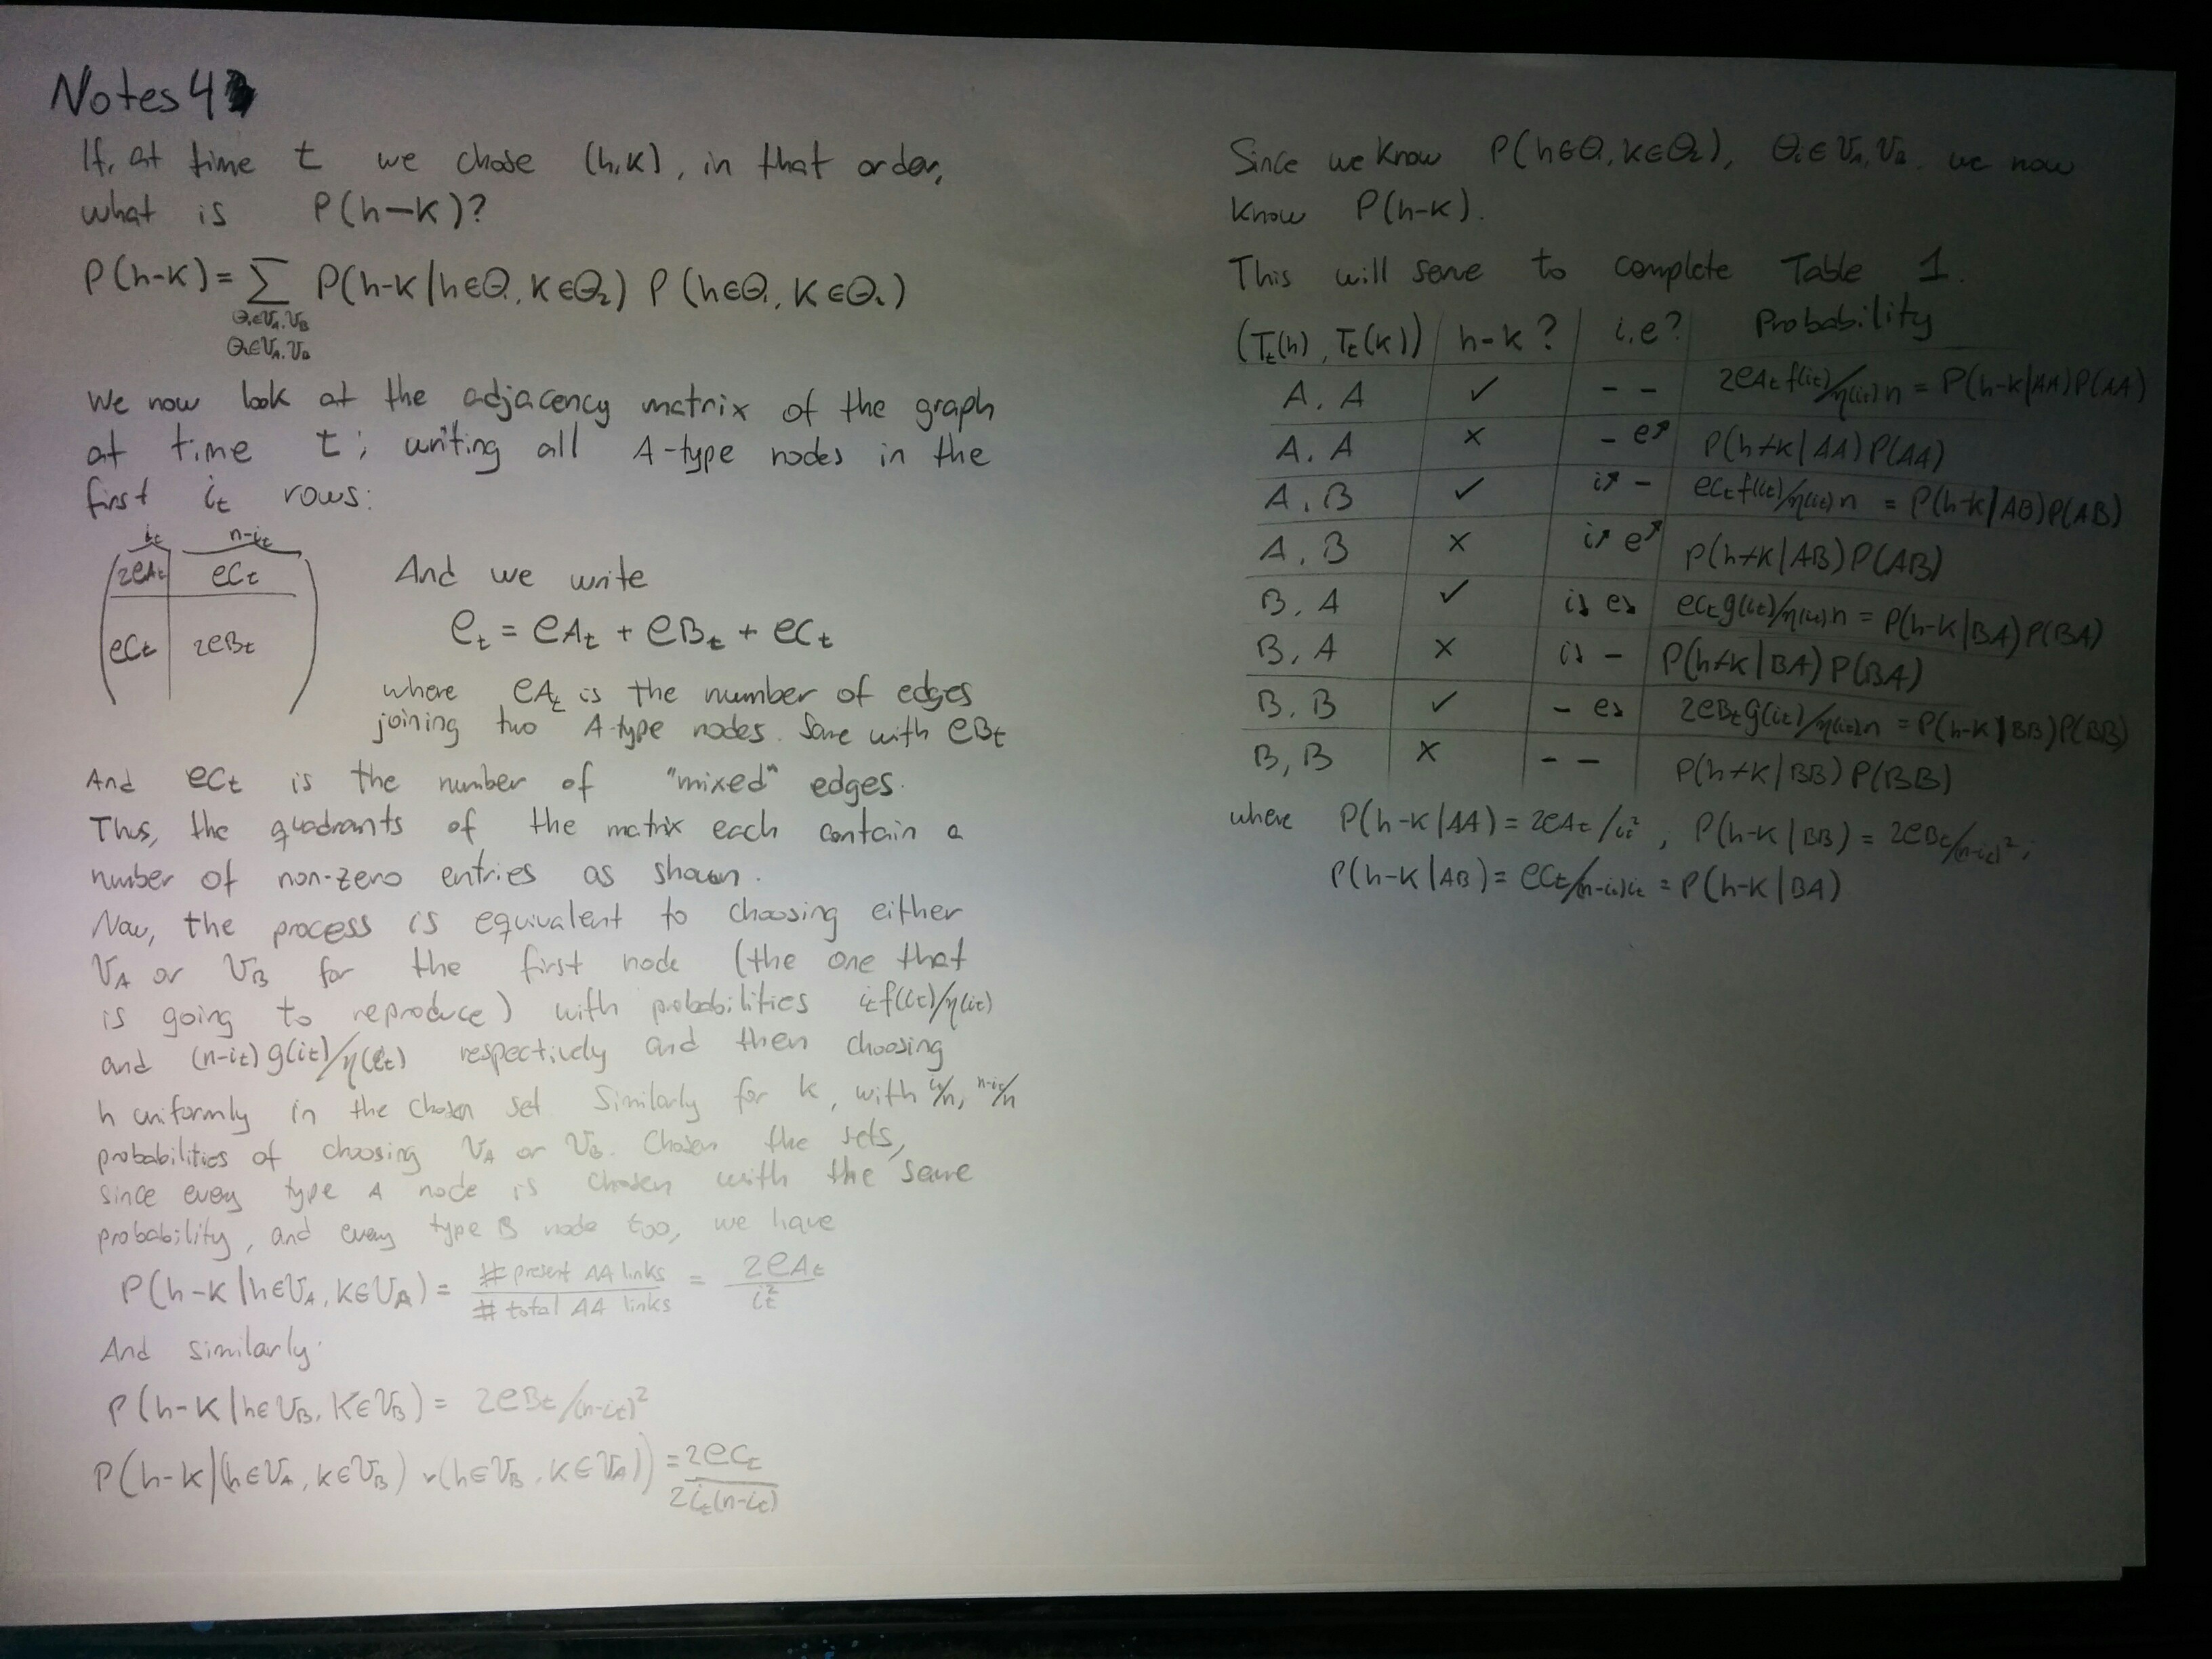 Notes 4
If, at time t we chose (h,k), in that order,
what is P(h-k)?
P(h-k) = ∑ P(h-k|h∈Θ₁, k∈Θ₂) P(h∈Θ₁, k∈Θ₂)
Θ₁∈V_A, V_B
Θ₂∈V_A, V_B
We now look at the adjacency matrix of the graph
at time t; writing all A-type nodes in the
first i_t rows:
i_t n-i_t
2eA_t eC_t
eC_t 2eB_t
And we write
e_t = eA_t + eB_t + eC_t
where eA_t is the number of edges
joining two A-type nodes. Same with eB_t
And eC_t is the number of "mixed" edges.
Thus, the quadrants of the matrix each contain a
number of non-zero entries as shown.
Now, the process is equivalent to choosing either
V_A or V_B for the first node (the one that
is going to reproduce) with probabilities i_t f(i_t)/η(i_t)
and (n-i_t) g(i_t)/η(i_t) respectively and then choosing
h uniformly in the chosen set. Similarly for k, with i_t/n, n-i_t/n
probabilities of choosing V_A or V_B. Chosen the sets,
since every type A node is chosen with the same
probability, and every type B node too, we have
P(h-k|h∈V_A, k∈V_A) = # present AA links / # total AA links = 2eA_t / i_t²
And similarly:
P(h-k|h∈V_B, k∈V_B) = 2eB_t/(n-i_t)²
P(h-k|(h∈V_A, k∈V_B) ∨ (h∈V_B, k∈V_A)) = 2eC_t / 2i_t(n-i_t)
Since we know P(h∈Θ₁, k∈Θ₂), Θᵢ∈V_A, V_B, we now
know P(h-k).
This will serve to complete Table 1.
(T_t(h), T_t(k)) h-k? i, e? Probability
A, A ✓ - - 2eA_t f(i_t)/η(i_t)n = P(h-k|AA)P(AA)
A, A × - e↗ P(h≁k|AA)P(AA)
A, B ✓ i↗ - eC_t f(i_t)/η(i_t)n = P(h-k|AB)P(AB)
A, B × i↗ e↗ P(h≁k|AB)P(AB)
B, A ✓ i↘ e↘ eC_t g(i_t)/η(i_t)n = P(h-k|BA)P(BA)
B, A × i↘ - P(h≁k|BA)P(BA)
B, B ✓ - e↘ 2eB_t g(i_t)/η(i_t)n = P(h-k|BB)P(BB)
B, B × - - P(h≁k|BB)P(BB)
where P(h-k|AA) = 2eA_t/i_t², P(h-k|BB) = 2eB_t/(n-i_t)²;
P(h-k|AB) = eC_t/(n-i_t)i_t = P(h-k|BA)